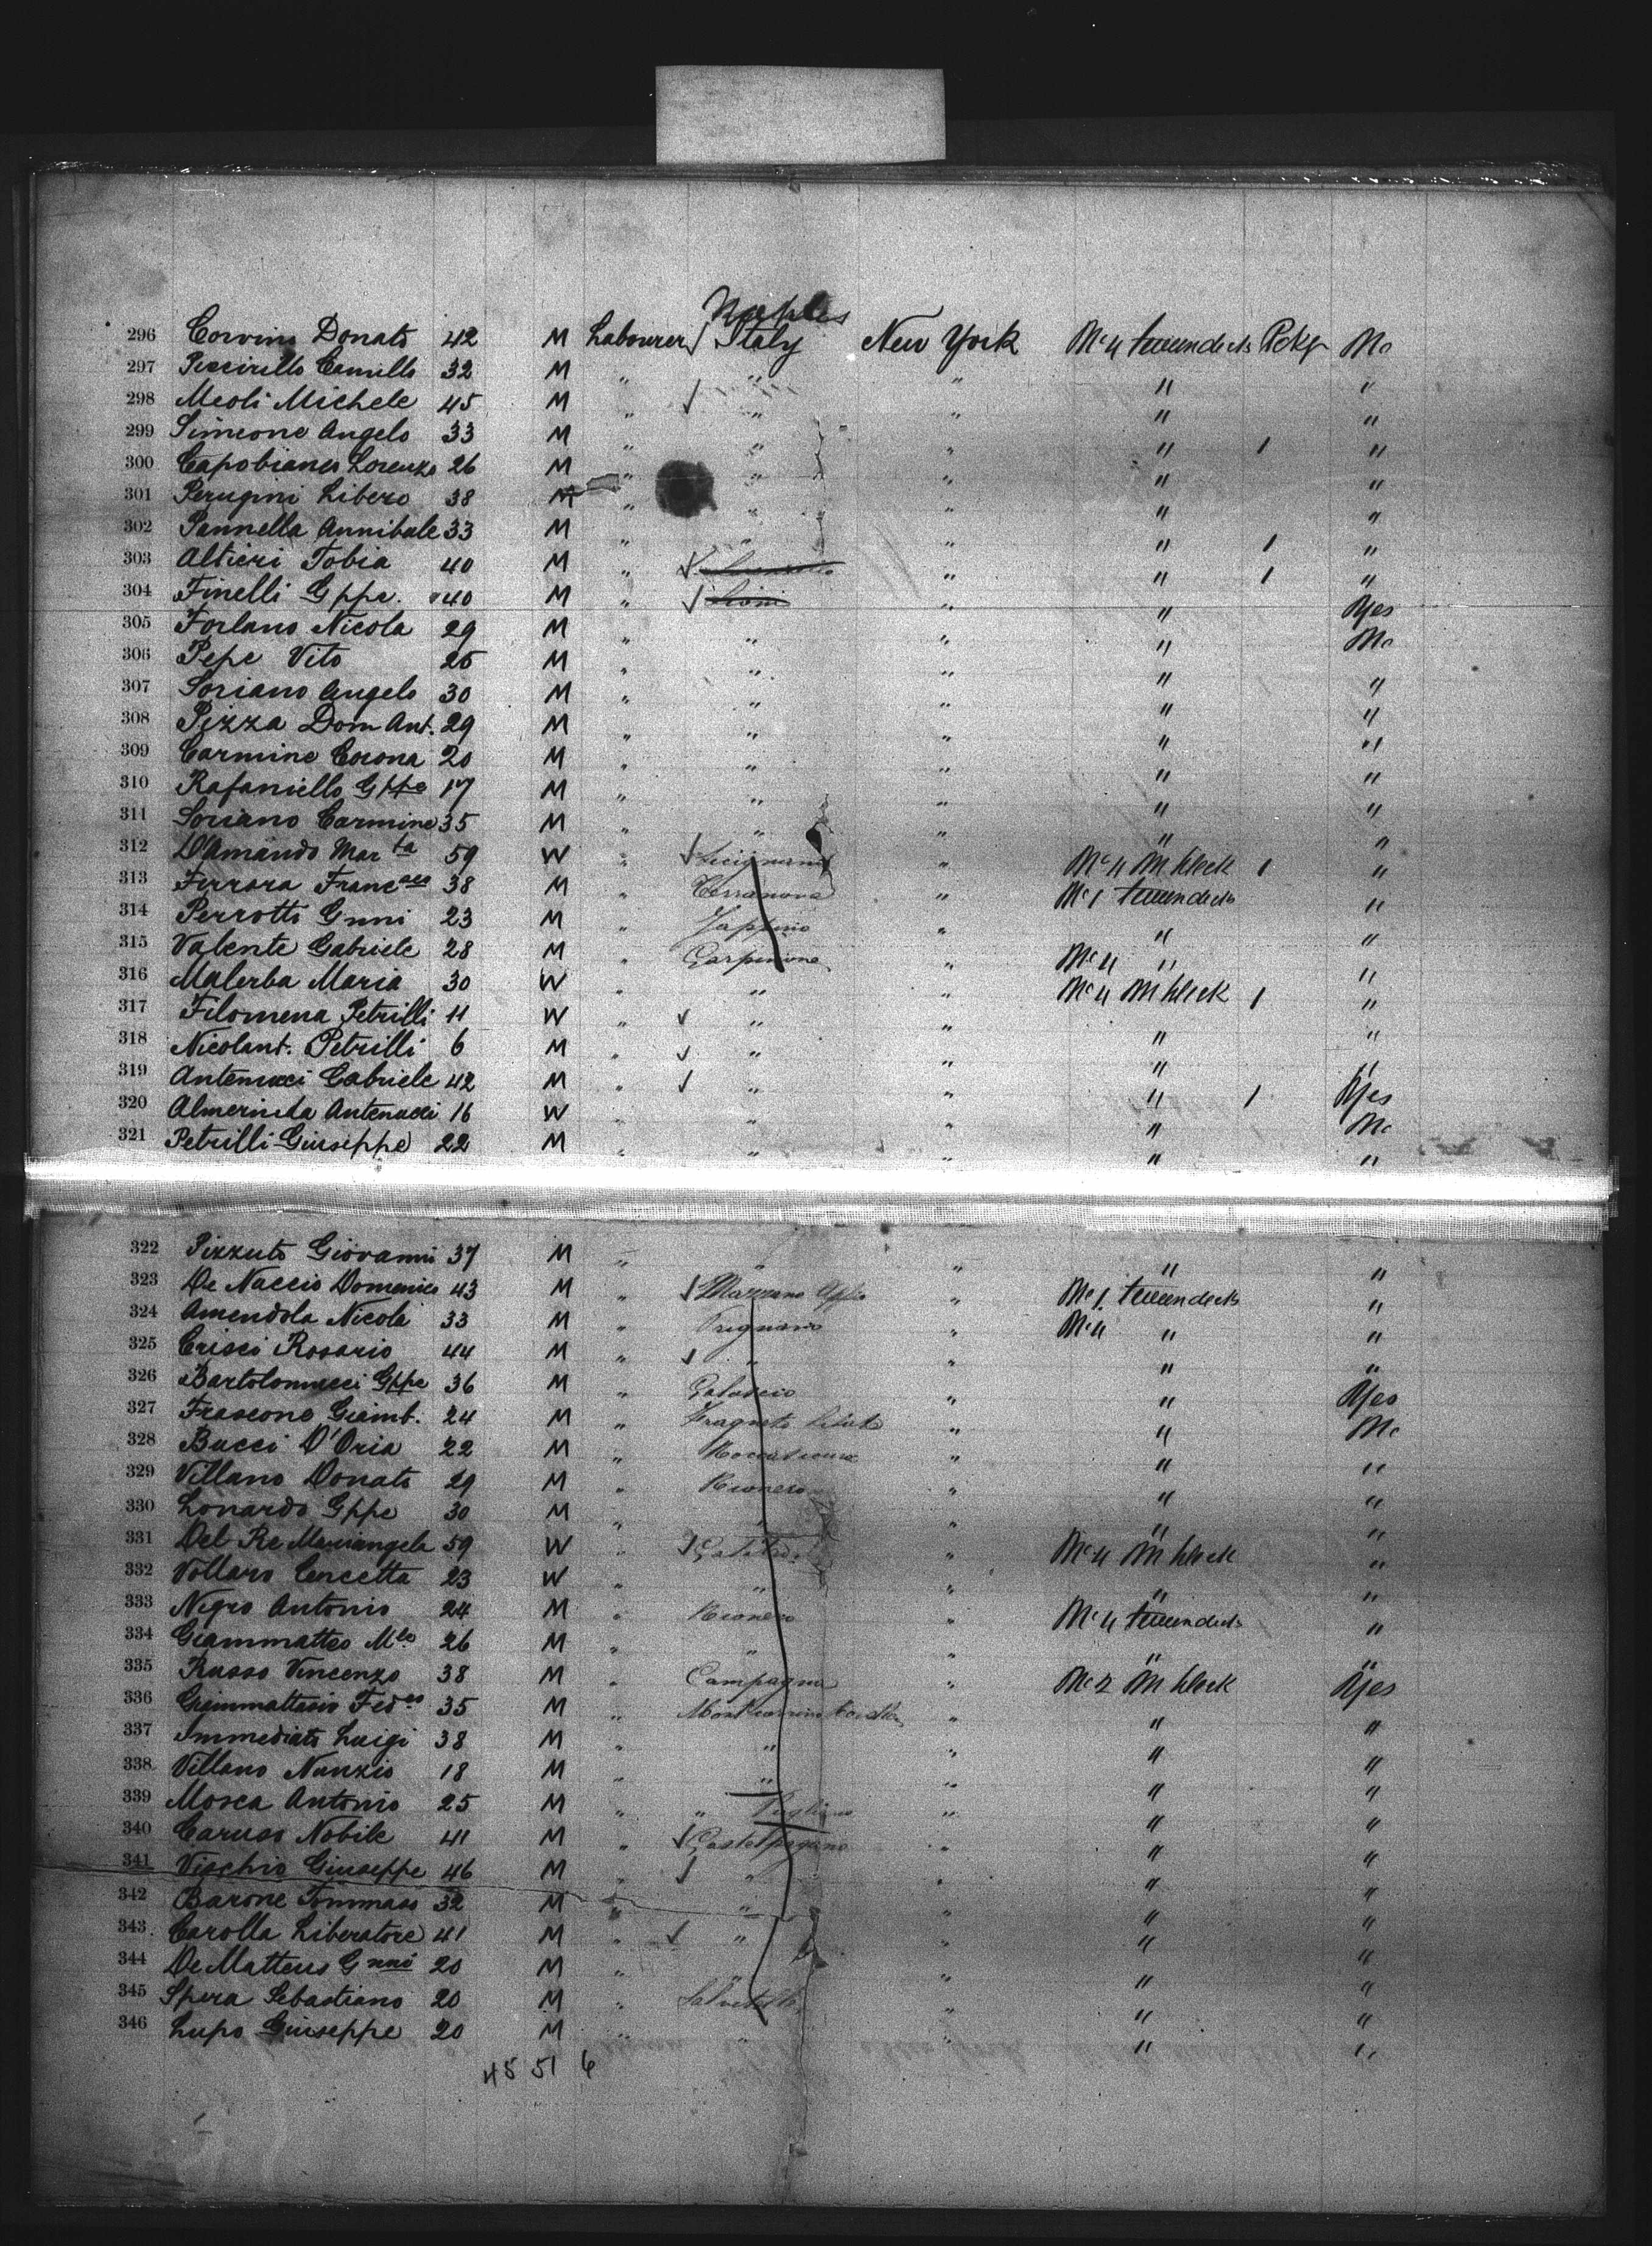 Naples
296 Corvino Donato 42 M Labourer Italy New York No 4 tweendeck Pckg No
297 Piscirillo Camillo 32 M " " " " "
298 Meoli Michele 45 M " " " " "
299 Simeone Angelo 33 M " " " " 1 "
300 Capobianco Lorenzo 26 M " " " " "
301 Perugini Libero 38 M " " " " "
302 Pannella Annibale 33 M " " " " 1 "
303 Altieri Tobia 40 M " " " 1 "
304 Finelli Gppe. 40 M " Lioni " " Yes
305 Forlano Nicola 29 M " " " " No
306 Pepe Vito 25 M " " " " "
307 Soriano Angelo 30 M " " " " "
308 Pizza Dom Ant. 29 M " " " " "
309 Carmine Corona 20 M " " " " "
310 Rafaniello Gppe 17 M " " " " "
311 Soriano Carmine 35 M " " " " "
312 D'Amando Marta 59 W " Sicignano " No 4 M hleck 1 "
313 Ferrara Francesco 38 M " Terranova " No 1 tweendeck "
314 Perrotti Gnni 23 M " Jappino " " "
315 Valente Gabriele 28 M " Carpinone " No 4 " "
316 Malerba Maria 30 W " " " No 4 M hleck 1 "
317 Filomena Petrilli 11 W " " " " "
318 Nicolant. Petrilli 6 M " " " " "
319 Antenucci Gabriele 42 M " " " " 1 Yes
320 Almerinda Antenucci 16 W " " " " No
321 Petrilli Giuseppe 22 M " " " " "
322 Pizzuto Giovanni 37 M " " " " "
323 De Naccio Domenico 43 M " Mazzano Applo " No 1. tweendeck "
324 Amendola Nicola 33 M " Prignano " No 4 " "
325 Crisci Rosario 44 M " " " " "
326 Bartolomucci Gppe 36 M " Galuccio " " Yes
327 Frascone Giamb. 24 M " Fragneto " " No
328 Bucci D'Oria 22 M " Roccasicura " " "
329 Villano Donato 29 M " Rionero " " "
330 Lonardo Gppe 30 M " " " " "
331 Del Re Mariangela 59 W " " No 4 M hleck "
332 Vollaro Concetta 23 W " " " " "
333 Negro Antonio 24 M " Rionero " No 4 tweendeck "
334 Giammatteo Mle 26 M " " " " "
335 Russo Vincenzo 38 M " Campagna " No 2 M hleck Yes
336 Giammattasio Fedco 35 M " " " "
337 Immediato Luigi 38 M " " " " "
338 Villano Nunzio 18 M " " " " "
339 Mosca Antonio 25 M " " Pugliano " " "
340 Caruso Nobile 41 M " Castelpagano " " "
341 Vischio Giuseppe 46 M " " " " "
342 Barone Tommaso 32 M " " " " "
343 Carolla Liberatore 41 M " " " " "
344 De Matteus Gnni 20 M " " " " "
345 Spera Sebastiano 20 M " Salvitelle " " "
346 Lupo Giuseppe 20 M " " " " "
45 51 6